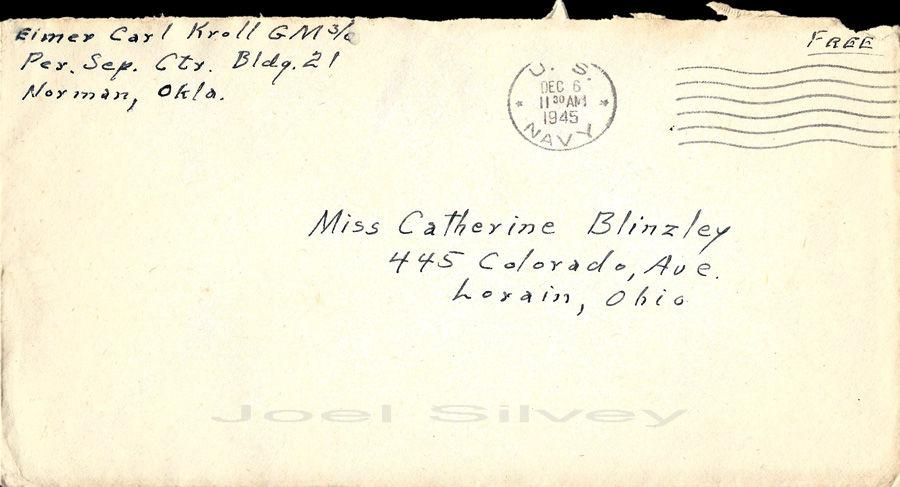 Elmer Carl Kroll GM3/c
Per. Sep. Ctr. Bldg. 21
Norman, Okla.
FREE
U. S.
DEC 6
11 30 AM
1945
NAVY
Miss Catherine Blinzley
445 Colorado, Ave.
Lorain, Ohio
Joel Silvey